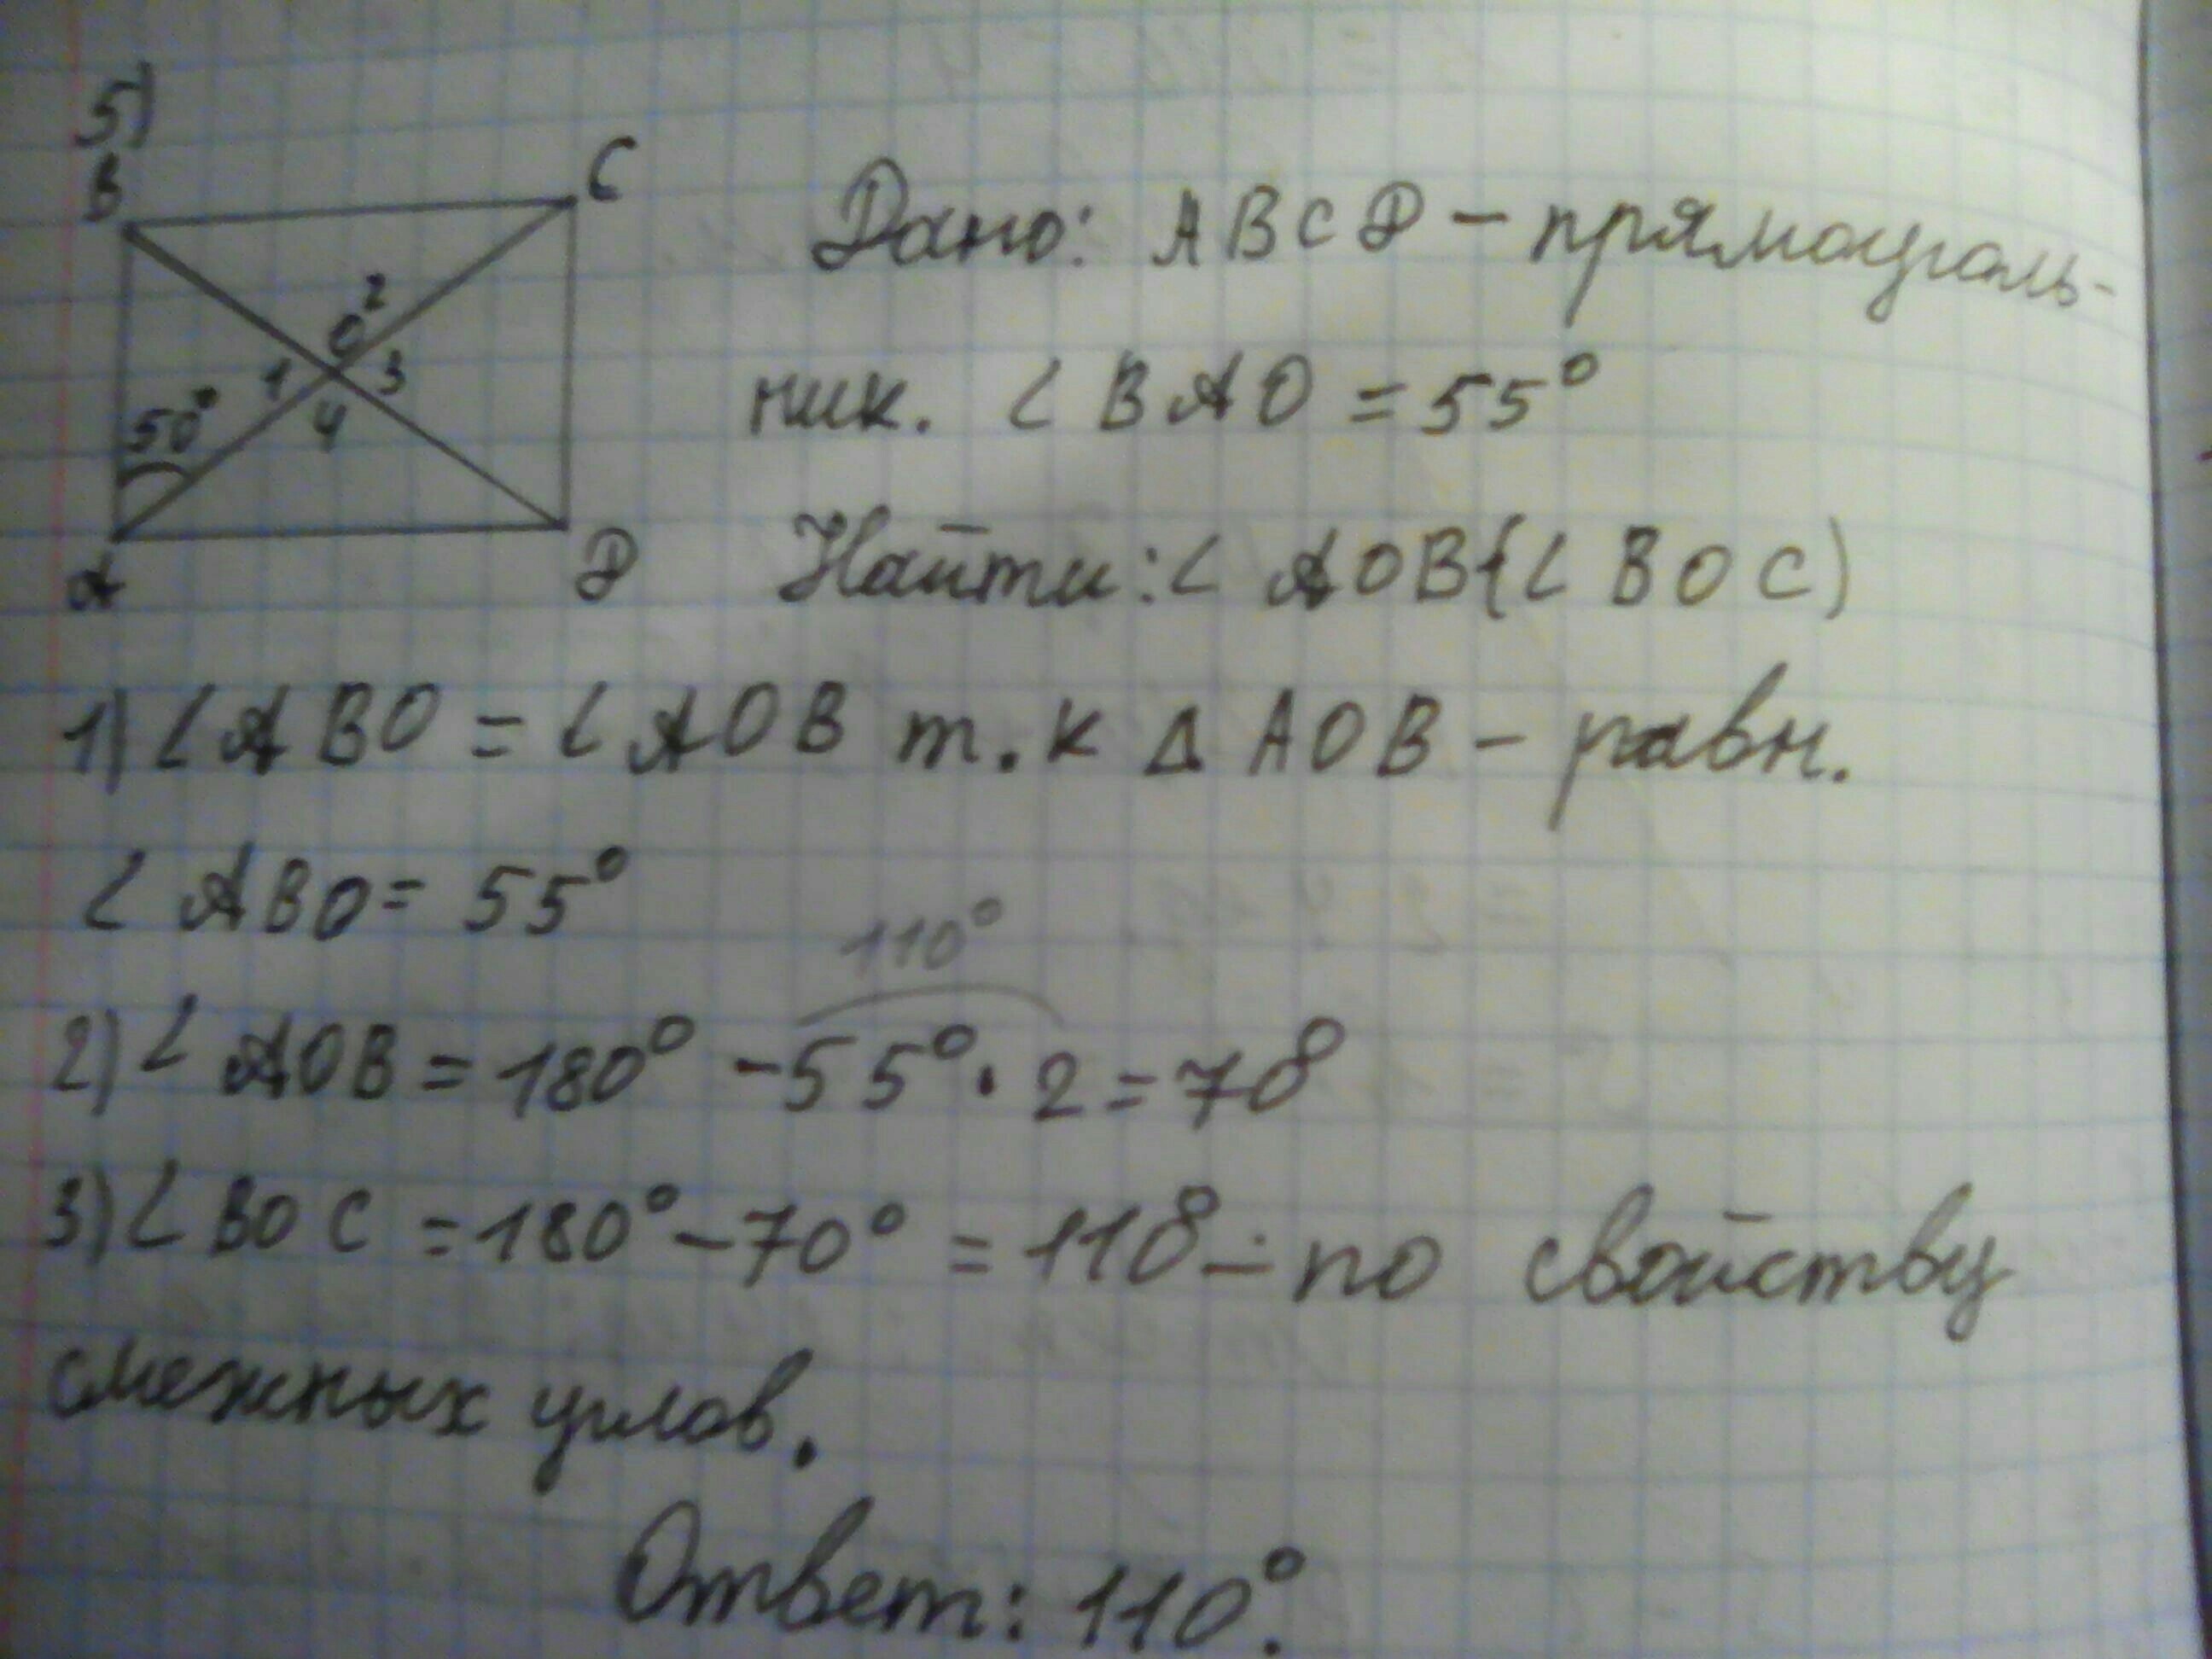 5)
B
C
2
O
1
3
50°
4
A
D
Дано: ABCD - прямоуголь-
ник. ∠BAO = 55°
Найти: ∠AOB(∠BOC)
1) ∠ABO = ∠AOB т.к Δ AOB - равн.
∠ABO = 55°
110°
2) ∠AOB = 180° - 55° · 2 = 70°
3) ∠BOC = 180° - 70° = 110° - по свойству
смежных углов.
Ответ: 110°.